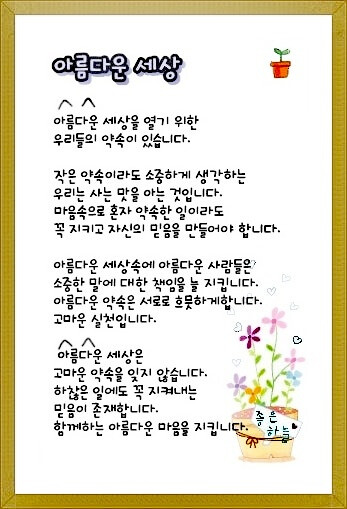 아름다운 세상
아름다운 세상을 열기 위한
우리들의 약속이 있습니다.
작은 약속이라도 소중하게 생각하는
우리는 사는 맛을 아는 것입니다.
마음속으로 혼자 약속한 일이라도
꼭 지키고 자신의 믿음을 만들어야 합니다.
아름다운 세상속에 아름다운 사람들은
소중한 말에 대한 책임을 늘 지킵니다.
아름다운 약속은 서로로 흐뭇하게합니다.
고마운 실천입니다.
아름다운 세상은
고마운 약속을 잊지 않습니다.
하찮은 일에도 꼭 지켜내는
믿음이 존재합니다.
함께하는 아름다운 마음을 지킵니다.
좋은
하늘